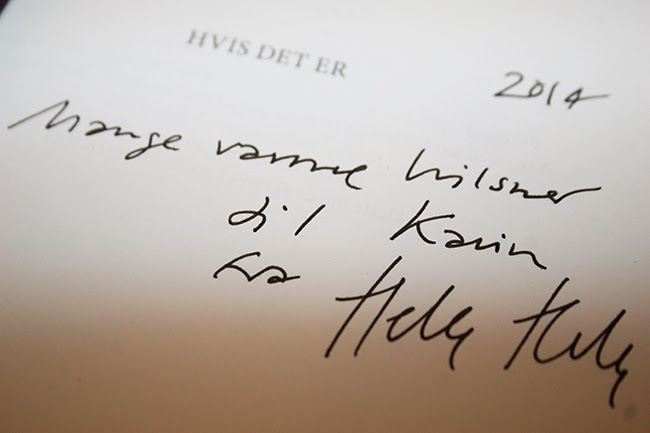 HVIS DET ER
2014
Mange varme hilsner
til Karin
fra Helle Helle